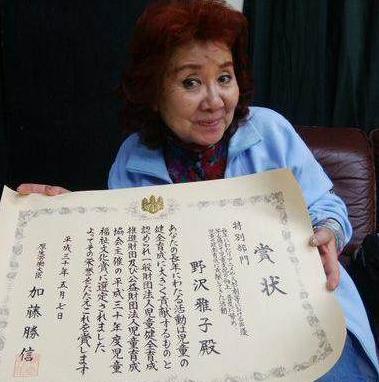 賞状
特別部門
野沢雅子殿
あなたの長年にわたる活動は児童の
健全育成に大きく貢献するものと
認められ一般財団法人児童健全育成
推進財団及び公益財団法人児童育成
協会主催の平成三十年度児童
福祉文化賞に選定されました
よってその栄誉をたたえこれを賞します
平成三十年五月七日
厚生労働大臣 加藤勝信